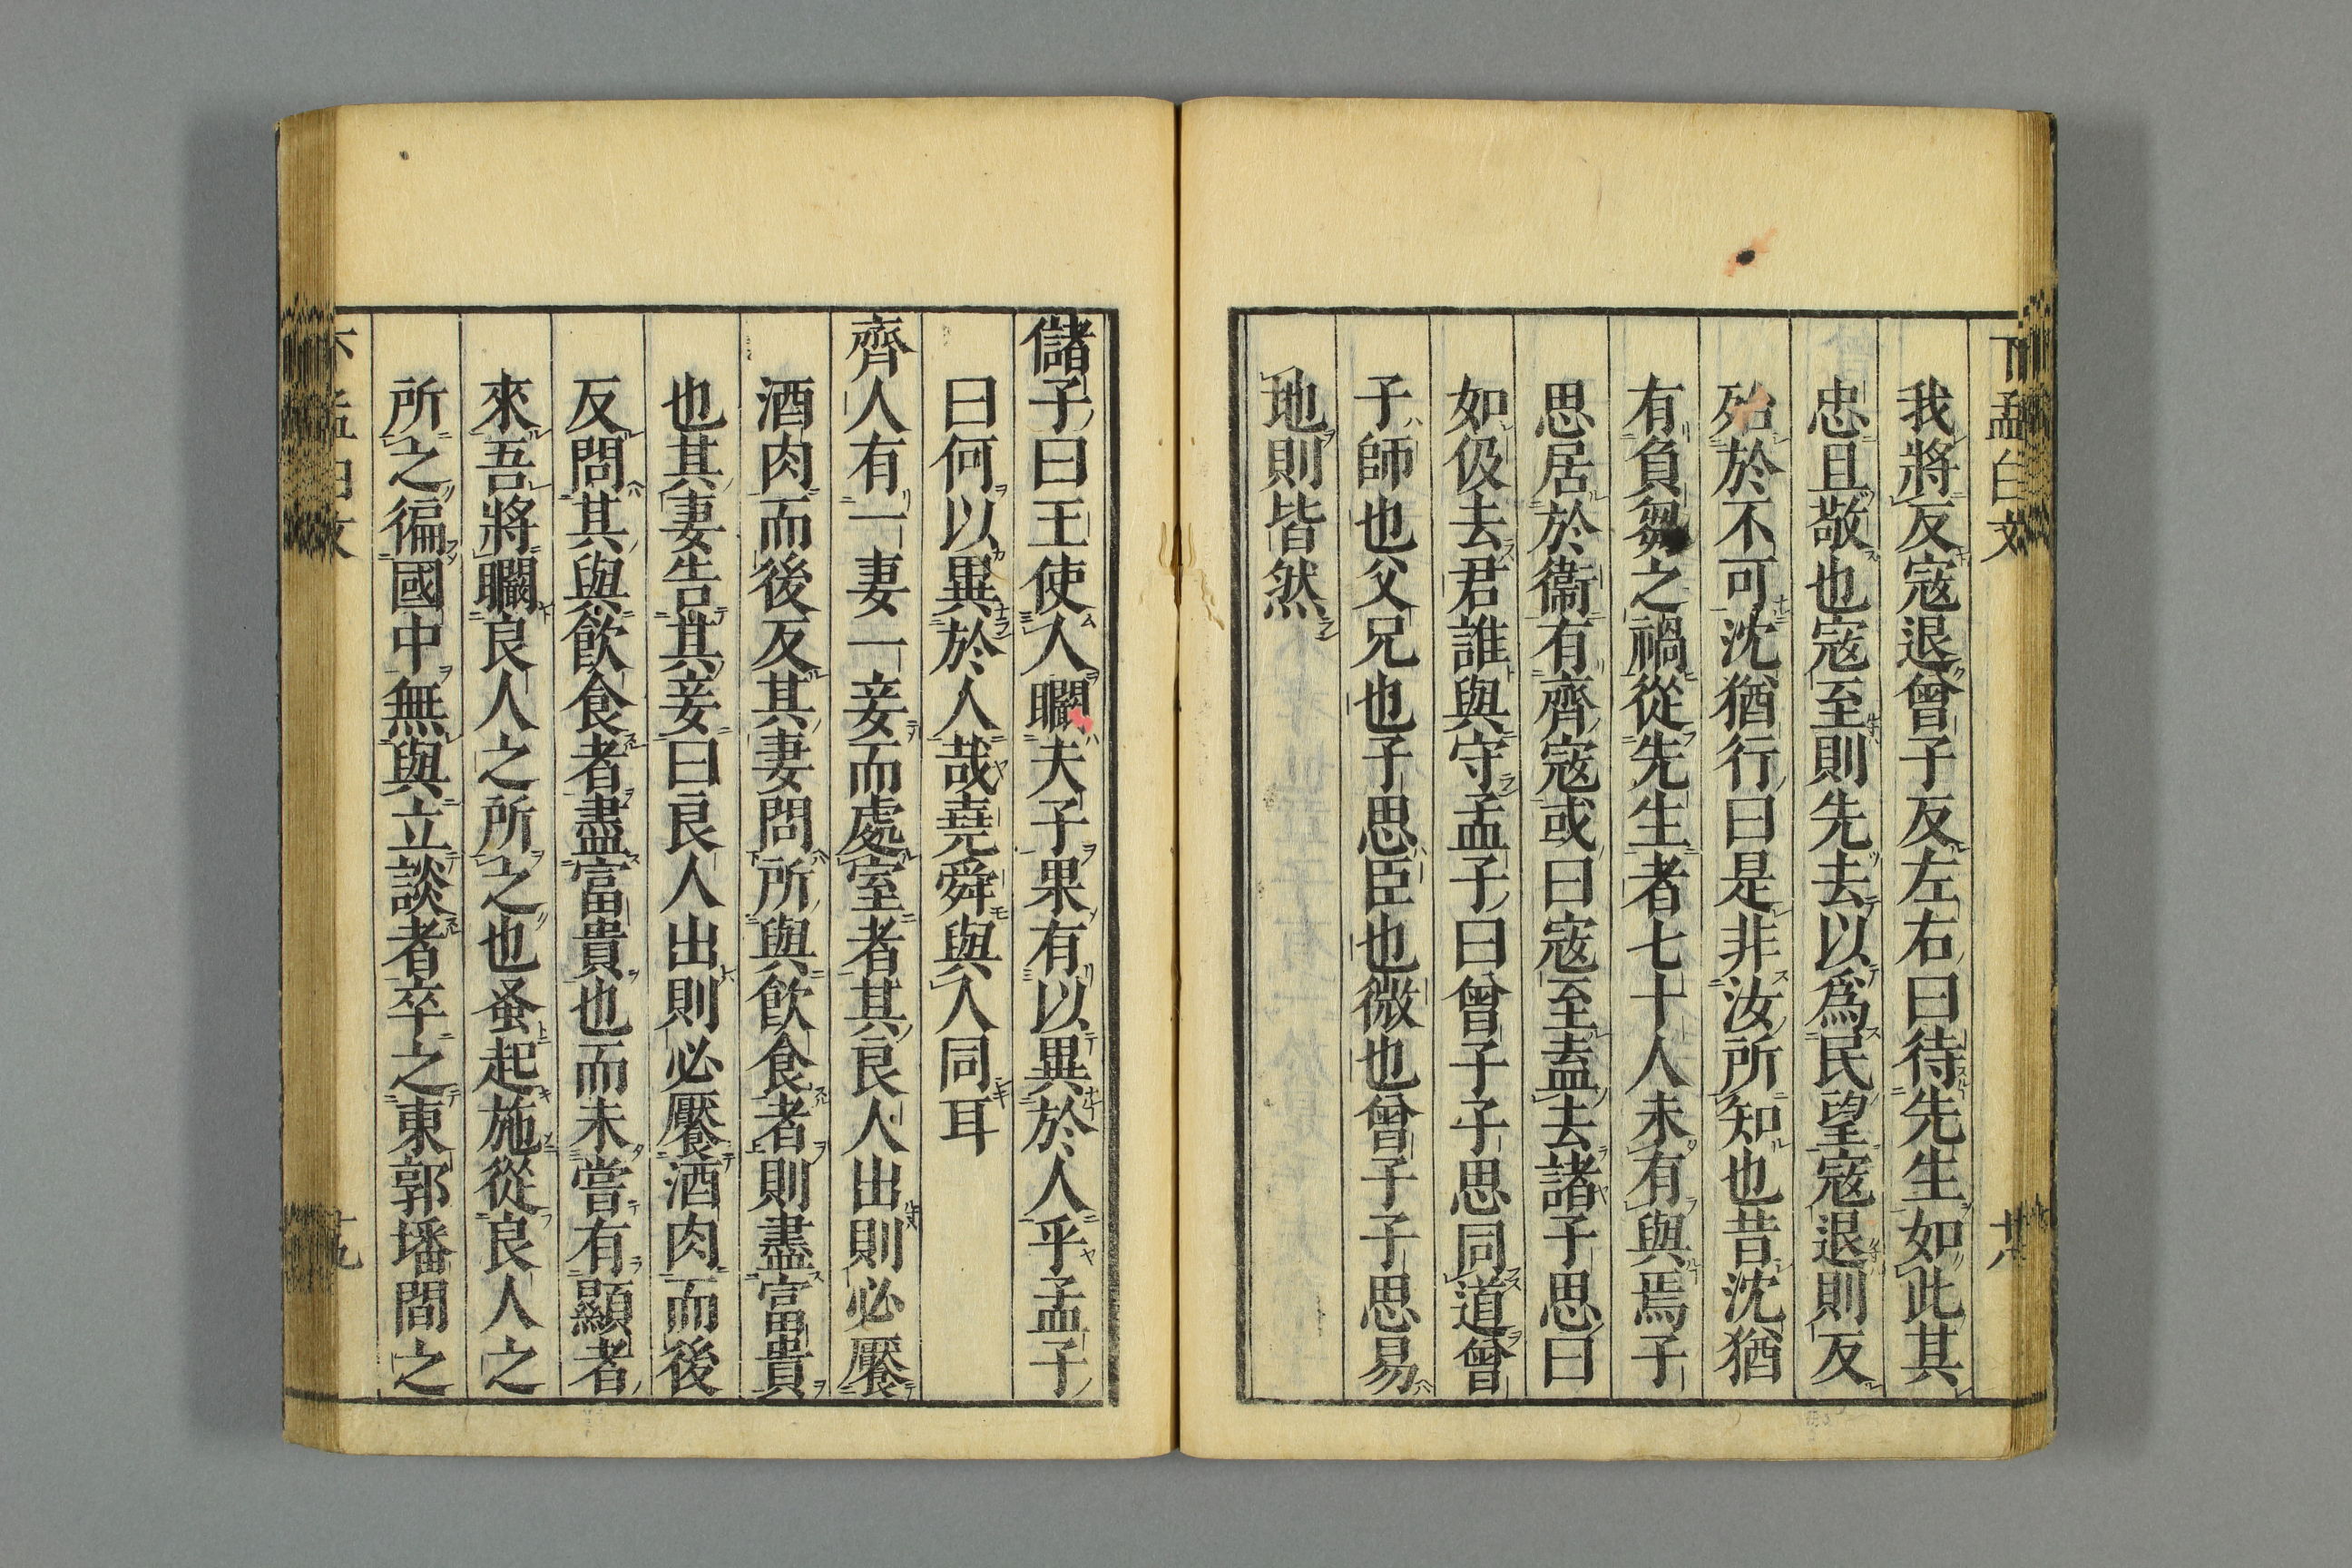 下孟白文
廿八
我將反寇退曾子反左右曰待先生如此其
忠且敬也寇至則先去以爲民望寇退則反
殆於不可沈猶行曰是非汝所知也昔沈猶
有負芻之禍從先生者七十人未有與焉子
思居於衞有齊寇或曰寇至盍去諸子思曰
如伋去君誰與守孟子曰曾子子思同道曾
子師也父兄也子思臣也微也曾子子思易
地則皆然
儲子曰王使人瞷夫子果有以異於人乎孟子
曰何以異於人哉堯舜與人同耳
齊人有一妻一妾而處室者其良人出則必饜
酒肉而後反其妻問所與飮食者則盡富貴
也其妻告其妾曰良人出則必饜酒肉而後
反問其與飮食者盡富貴也而未嘗有顯者
來吾將瞷良人之所之也蚤起施從良人之
所之徧國中無與立談者卒之東郭墦間之